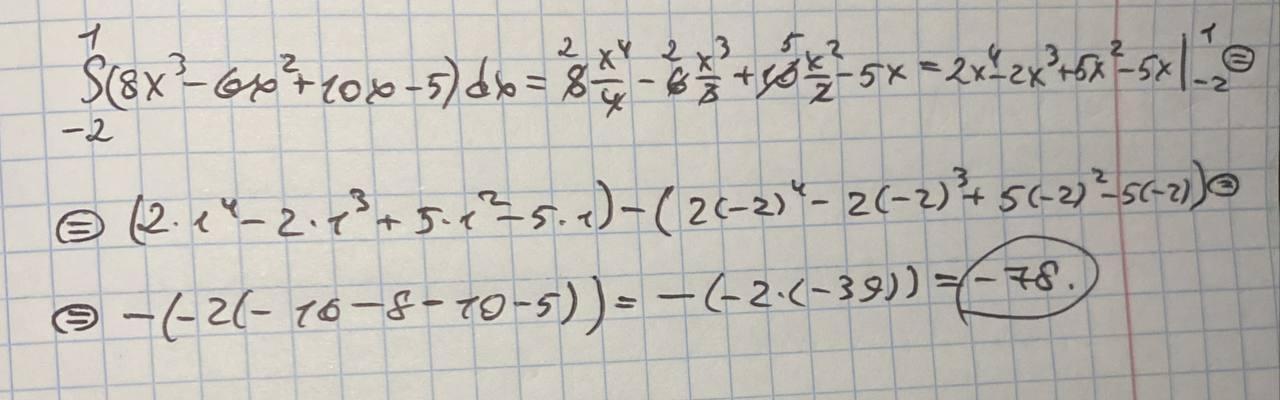 ∫₋₂¹(8x³ - 6x² + 10x - 5)dx = 8 x⁴/4 - 6 x³/3 + 10 x²/2 - 5x = 2x⁴ - 2x³ + 5x² - 5x |₋₂¹ =
= (2·1⁴ - 2·1³ + 5·1² - 5·1) - (2(-2)⁴ - 2(-2)³ + 5(-2)² - 5(-2)) =
= -(-2(-16 - 8 - 10 - 5)) = -(-2·(-39)) = -78.